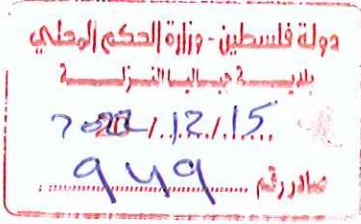 دولة فلسطين - وزارة الحكم المحلي
بلديــة جبــاليــا النــزلــة
2022/12/15
صادر رقم 949